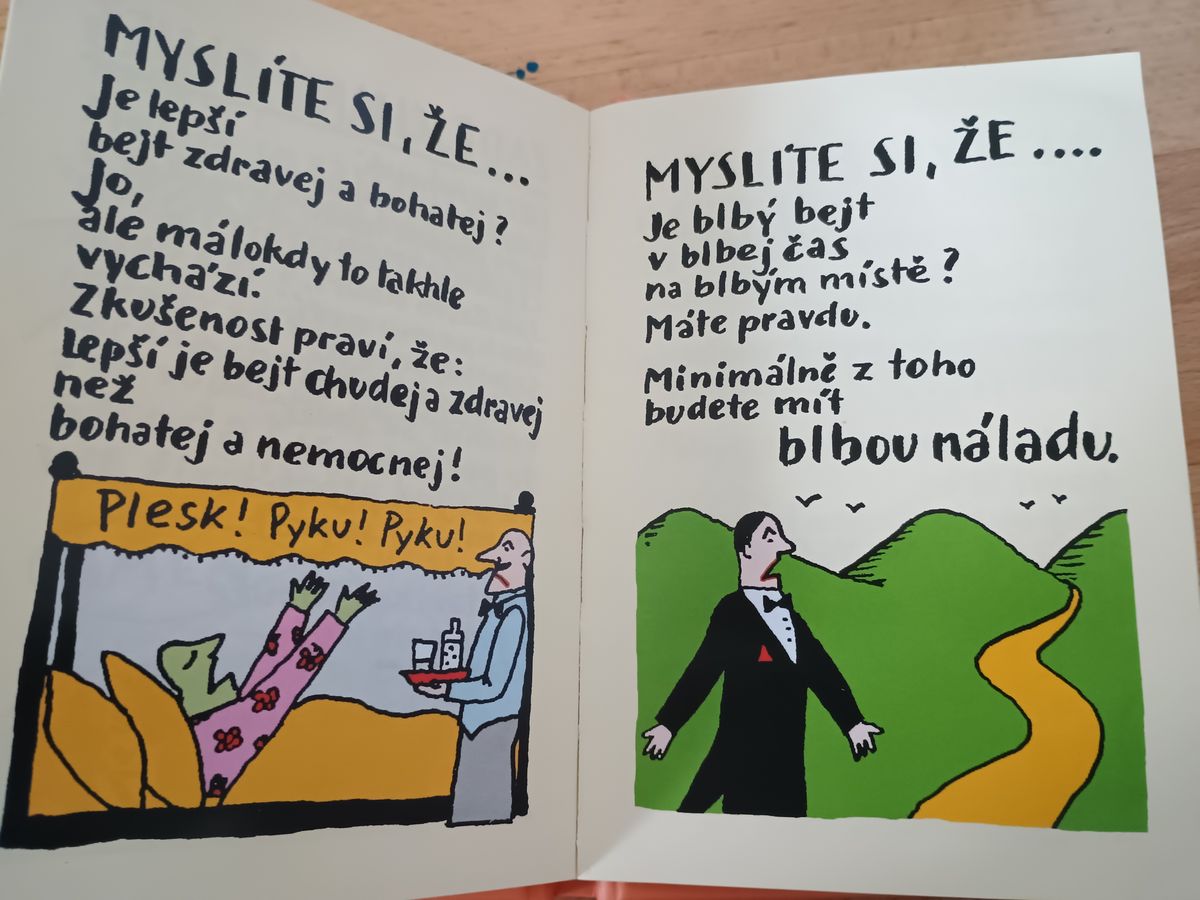 MYSLÍTE SI, ŽE...
Je lepší
bejt zdravej a bohatej?
Jo,
ale málokdy to takhle
vychází.
Zkušenost praví, že:
Lepší je bejt chudej a zdravej
než
bohatej a nemocnej!
Plesk! Pyku! Pyku!
MYSLÍTE SI, ŽE....
Je blbý bejt
v blbej čas
na blbým místě?
Máte pravdu.
Minimálně z toho
budete mít
blbou náladu.